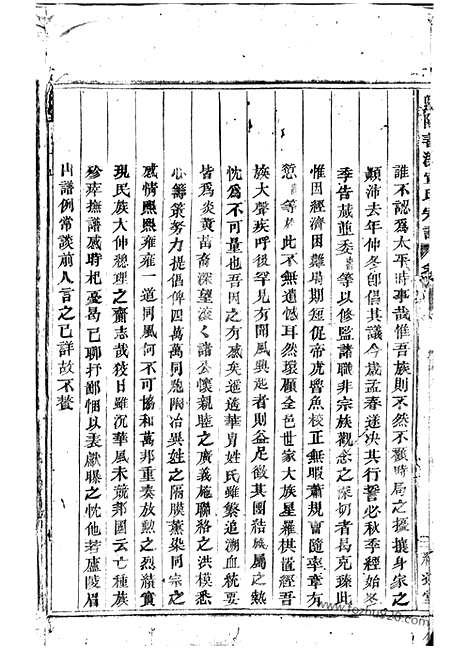 誰不認為太平時事哉惟吾族則不然不顧時局之擾攘身家之
顛沛去年仲冬即倡其議今歲孟春遂决其行誓必秋季經始冬
季告蕆並委 等以修監諸職非宗族觀念之深切者曷克臻此
惟因經濟困難局期短促帝虎魯魚校正無暇蕭規曹隨率章有
愆 等 此不無遺憾耳然環顧全邑世家大族星羅棋置經吾
族大聲疾呼後罕見有聞風興起者則益足徵其團結 属之熱
忱為不可量也吾因之有感矣遥遥華胄姓氏雖繁追溯血統要
皆為炎黄苗裔深望滚滚諸公懷親睦之廣義施聯絡之洪模悉
心籌策努力提倡俾四萬萬同胞陶冶異姓之隔膜薰染同宗之
感情熙熙雍雍一道同風何不可協和萬邦重奏放勲之烈績實
現民族大仲總理之齋志哉狡日雖沉華風未競邦國云亡種族
殄瘁撫譜感時杞憂曷已聊抒鄙悃以表獻曝之忱他若廬陵眉
山譜例常談前人言之已詳故不贅
www.fozhu920.com